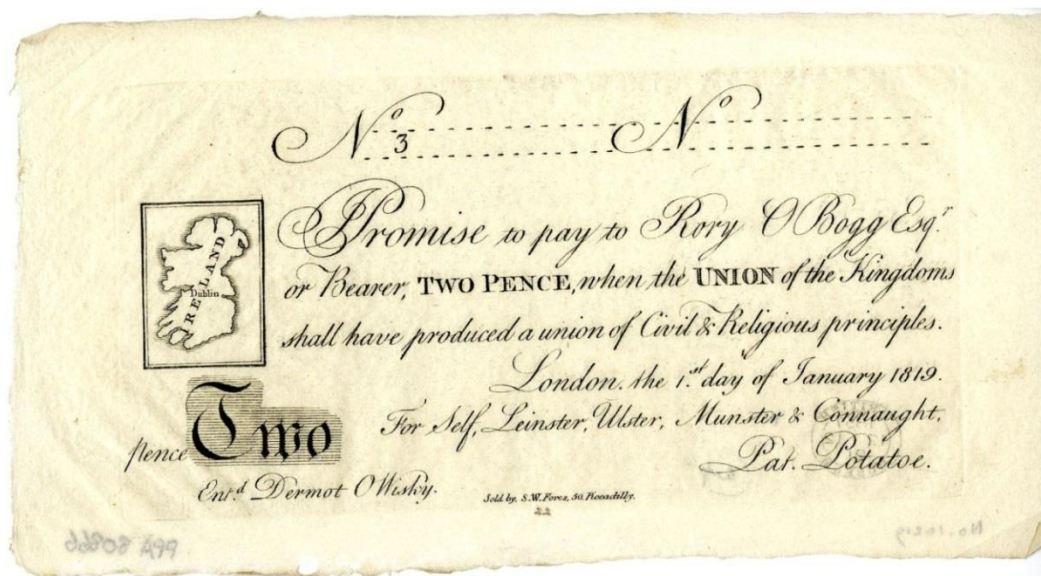 No 3 No
IRELAND
Dublin
I Promise to pay to Rory O Bogg Esqr.
or Bearer, TWO PENCE, when the UNION of the Kingdoms
shall have produced a union of Civil & Religious principles.
London. the 1.st day of January 1819.
For Self, Leinster, Ulster, Munster & Connaught,
pence Two
Pat. Potatoe.
Ent.d Dermot O Wisky.
Sold by S.W. Fores, 50, Piccadilly.
22
PPA 80866
No. 10219